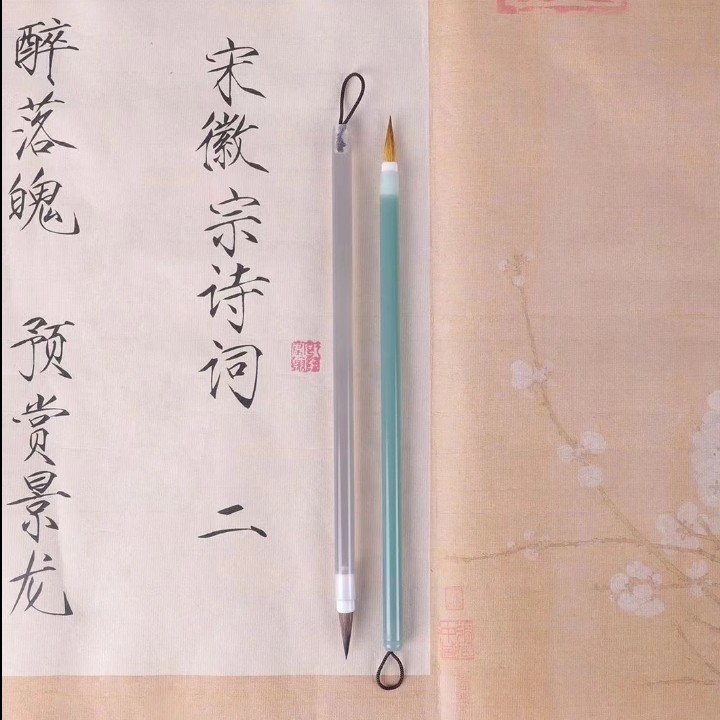 宋徽宗诗词 二
醉落魄 预赏景龙